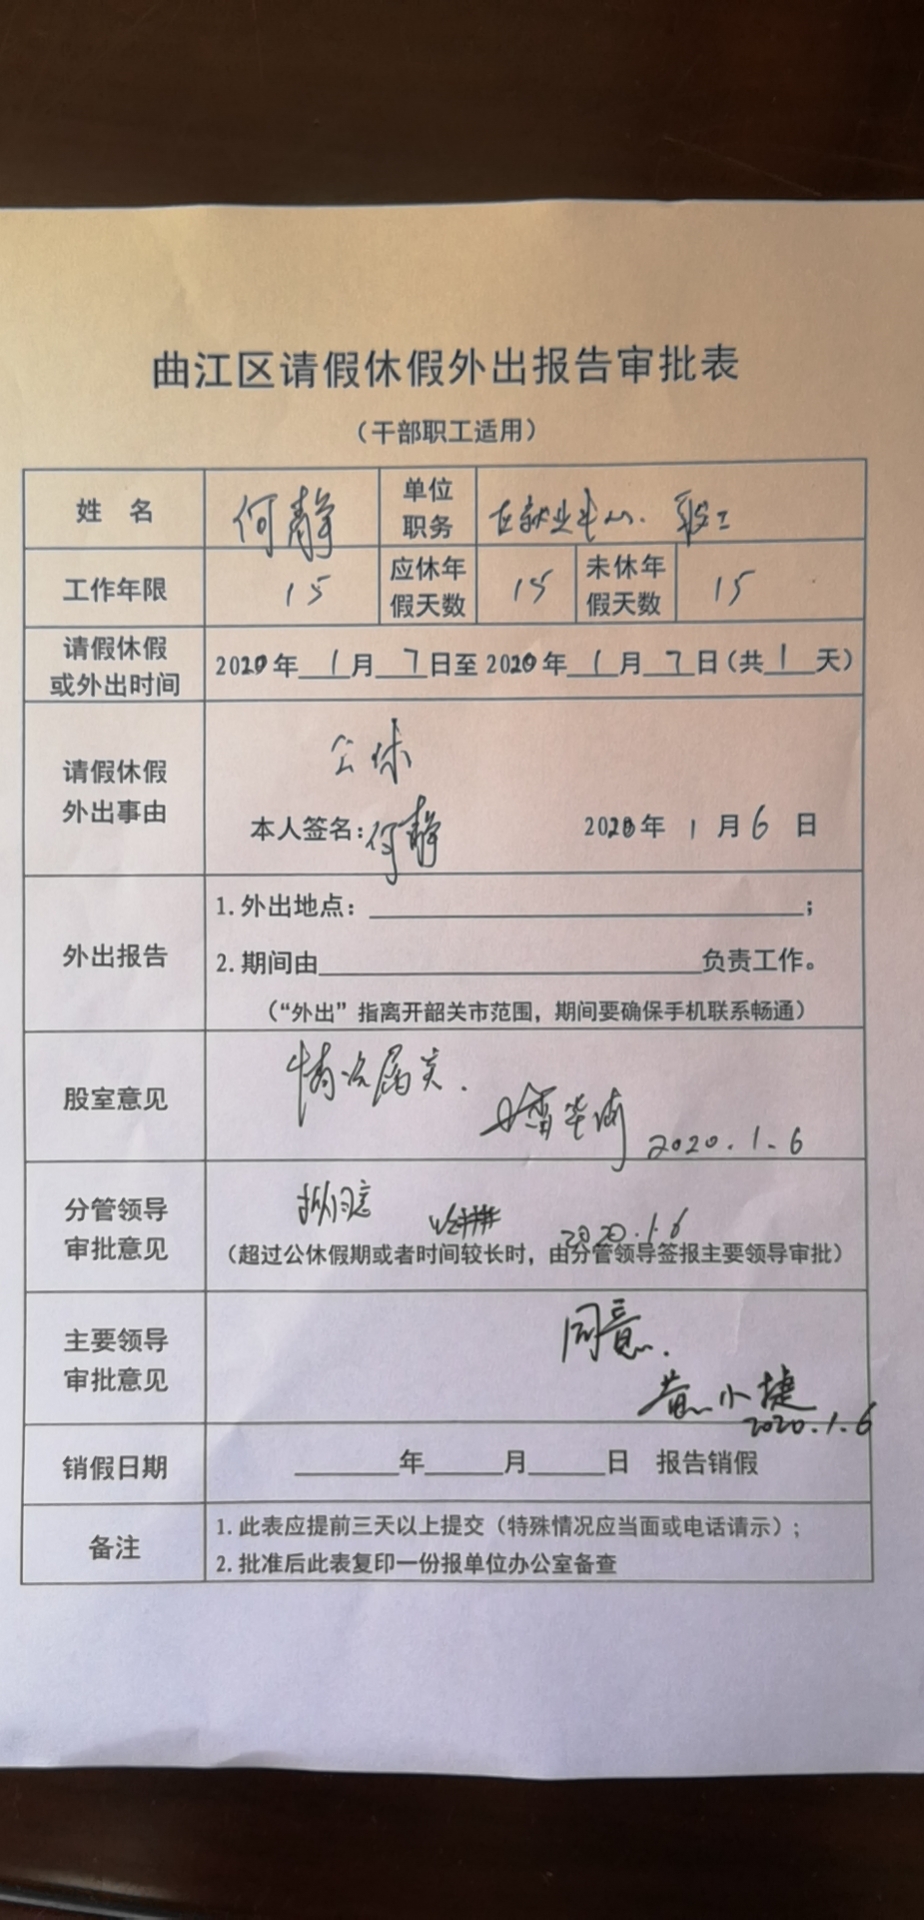 曲江区请假休假外出报告审批表
（干部职工适用）
姓 名 何静 单位职务 区就业中心. 职工
工作年限 15 应休年假天数 15 未休年假天数 15
请假休假或外出时间 2020年1月7日至2020年1月7日（共1天）
请假休假外出事由 公休
本人签名：何静 2020年1月6日
外出报告
1.外出地点：；
2.期间由负责工作。
（“外出”指离开韶关市范围，期间要确保手机联系畅通）
股室意见 情况属实.
2020.1.6
分管领导审批意见 拟同意 2020.1.6
（超过公休假期或者时间较长时，由分管领导签报主要领导审批）
主要领导审批意见 同意.
黄小捷
2020.1.6
销假日期 年 月 日 报告销假
备注
1.此表应提前三天以上提交（特殊情况应当面或电话请示）；
2.批准后此表复印一份报单位办公室备查